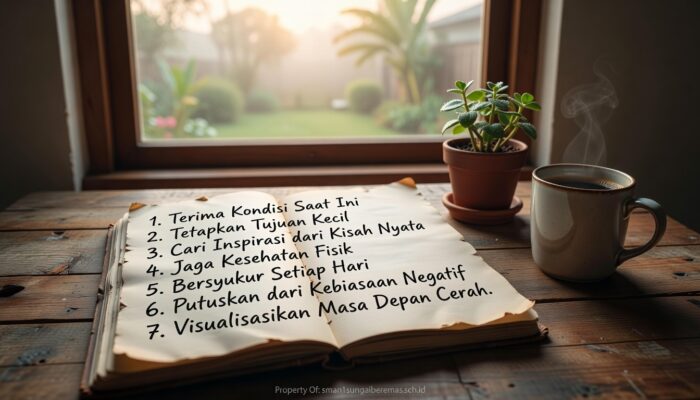 1. Terima Kondisi Saat Ini
2. Tetapkan Tujuan Kecil
3. Cari Inspirasi dari Kisah Nyata
4. Jaga Kesehatan Fisik
5. Bersyukur Setiap Hari
6. Putuskan dari Kebiasaan Negatif
7. Visualisasikan Masa Depan Cerah.
Property Of: sman1sungaiberemas.sch.id